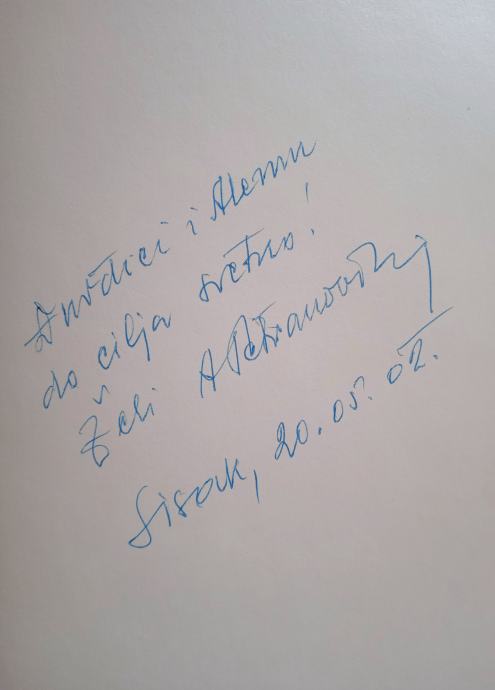 Đurđici i Alenu
do cilja sretno!
Želi A Petranović
Sisak, 20.05.02.